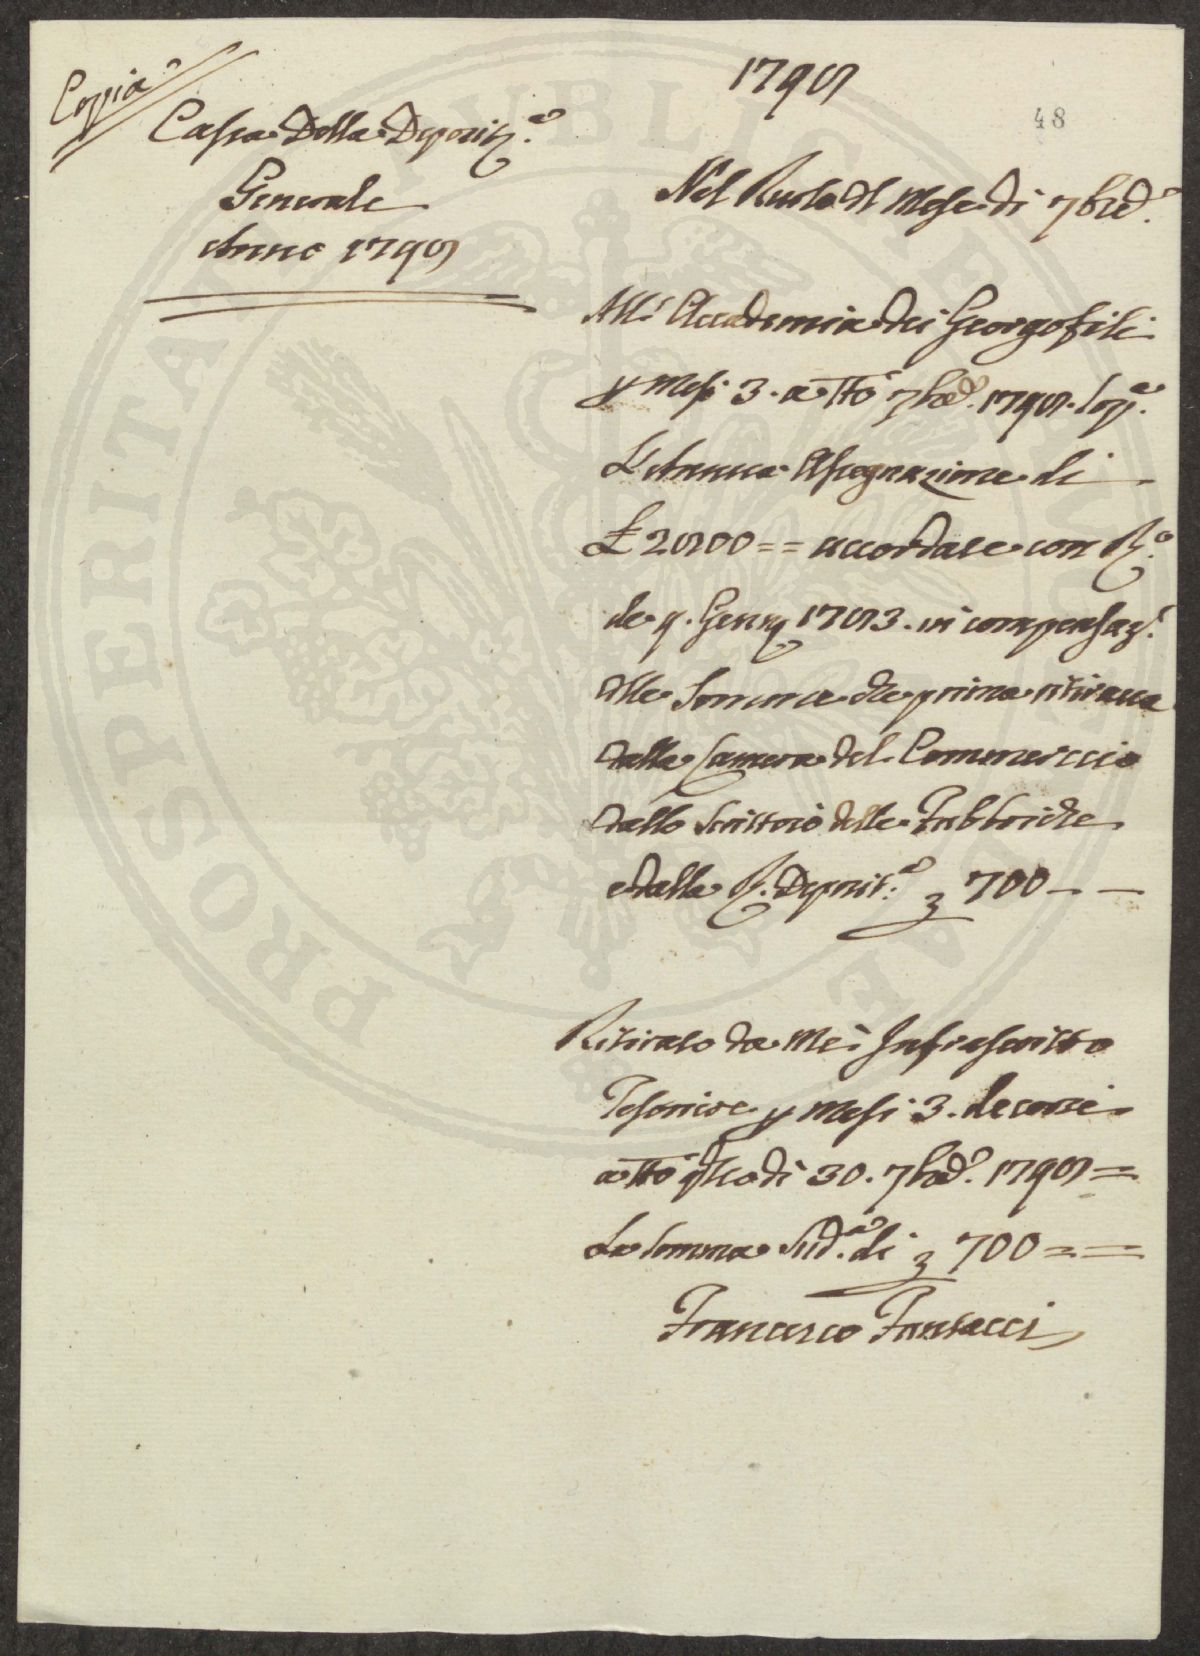 Coppia
Cassa Della Deposit.a
Generale
Anno 1795
1795
48
Nel Ruolo del Mese di 7bred.
All' Accademia dei Georgofili
p Mesi 3. a tto 7bred. 1795. Sop.a
L'Annua Assegnazione di
£ 2800 == accordate con R.o
de 9. Genn 1783. in compensaz.
delle Somme che prima ritirava
dalla Camera del Commerccio
dallo Scrittoio delle Fabbriche
e dalla R. Deposit.a 700 - -
Ritirato da Me Infrascritto
Tesoriere p Mesi 3. decorsi
a tto qsto dì 30. 7bred. 1795 =
La Somma Sud.a di 700 ==
Francesco Fantacci
PROSPERITATI PUBLICAE AUGENDAE